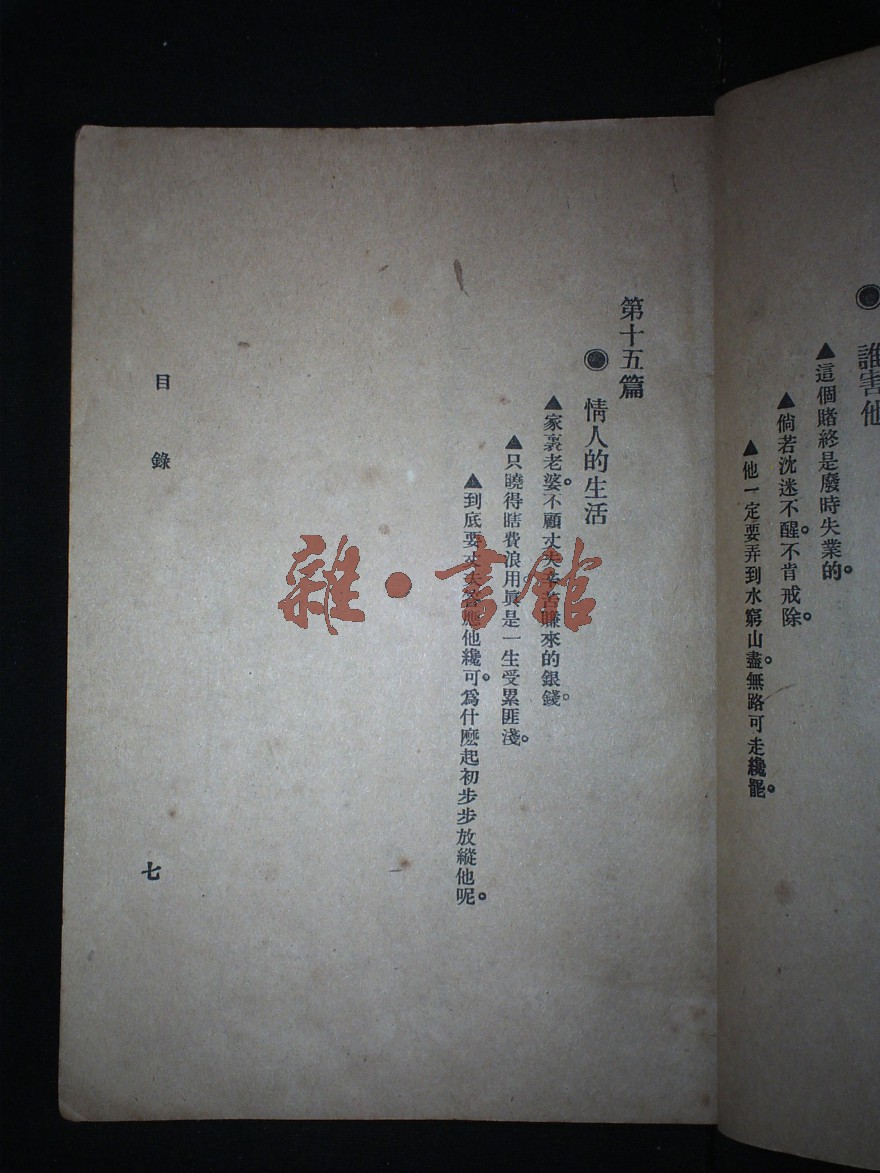 ● 誰害他
▲這個賭終是廢時失業的。
▲倘若沈迷不醒。不肯戒除。
▲他一定要弄到水窮山盡。無路可走纔罷。
第十五篇
◉ 情人的生活
▲家裏老婆。不顧丈夫辛苦賺來的銀錢。
▲只曉得瞎費浪用。眞是一生受累匪淺。
▲到底要丈夫答應他纔可。爲什麽起初步步放縱他呢。
目錄
七
雜·書館